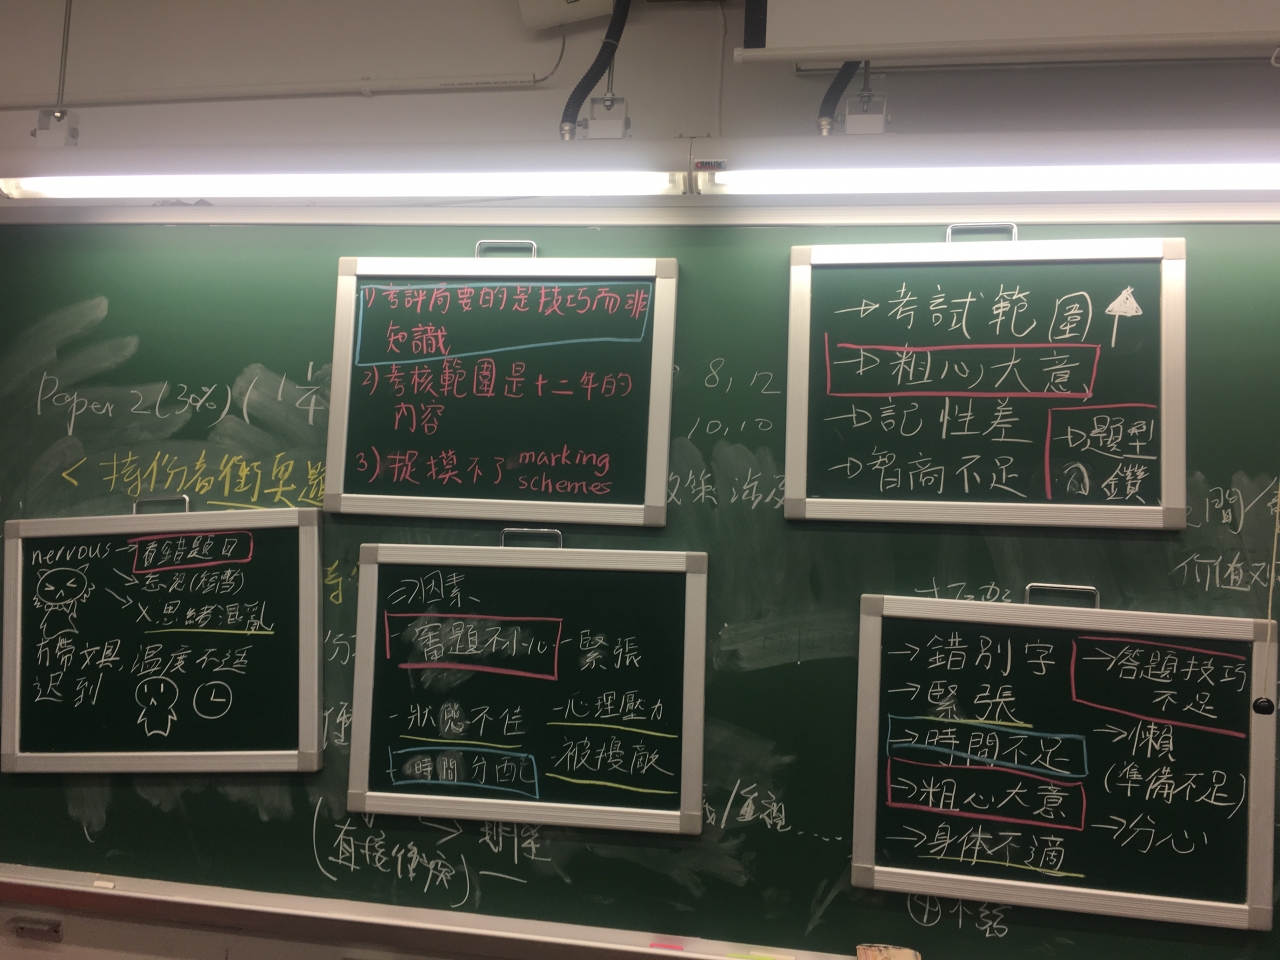 1) 考評局要的是技巧而非
知識
2) 考核範圍是十二年的
內容
3) 捉摸不了 marking
schemes
→考試範圍↑
→粗心大意
→記性差
→智商不足
→題型
刁鑽
Paper 2 (3%) (1 1/4
8, 12
10, 10
<持份者衝突題
nervous→看錯題目
→忘記(短暫)
→X思緒混亂
冇帶文具
温度不适
迟到
⇒因素
-審題不小心
-緊張
-狀態不佳
-心理壓力
-時間分配
-被擾敵
→錯別字
→緊張
→時間不足
→粗心大意
→身体不適
→答題技巧
不足
→懶
(準備不足)
→分心
(直接衝突)